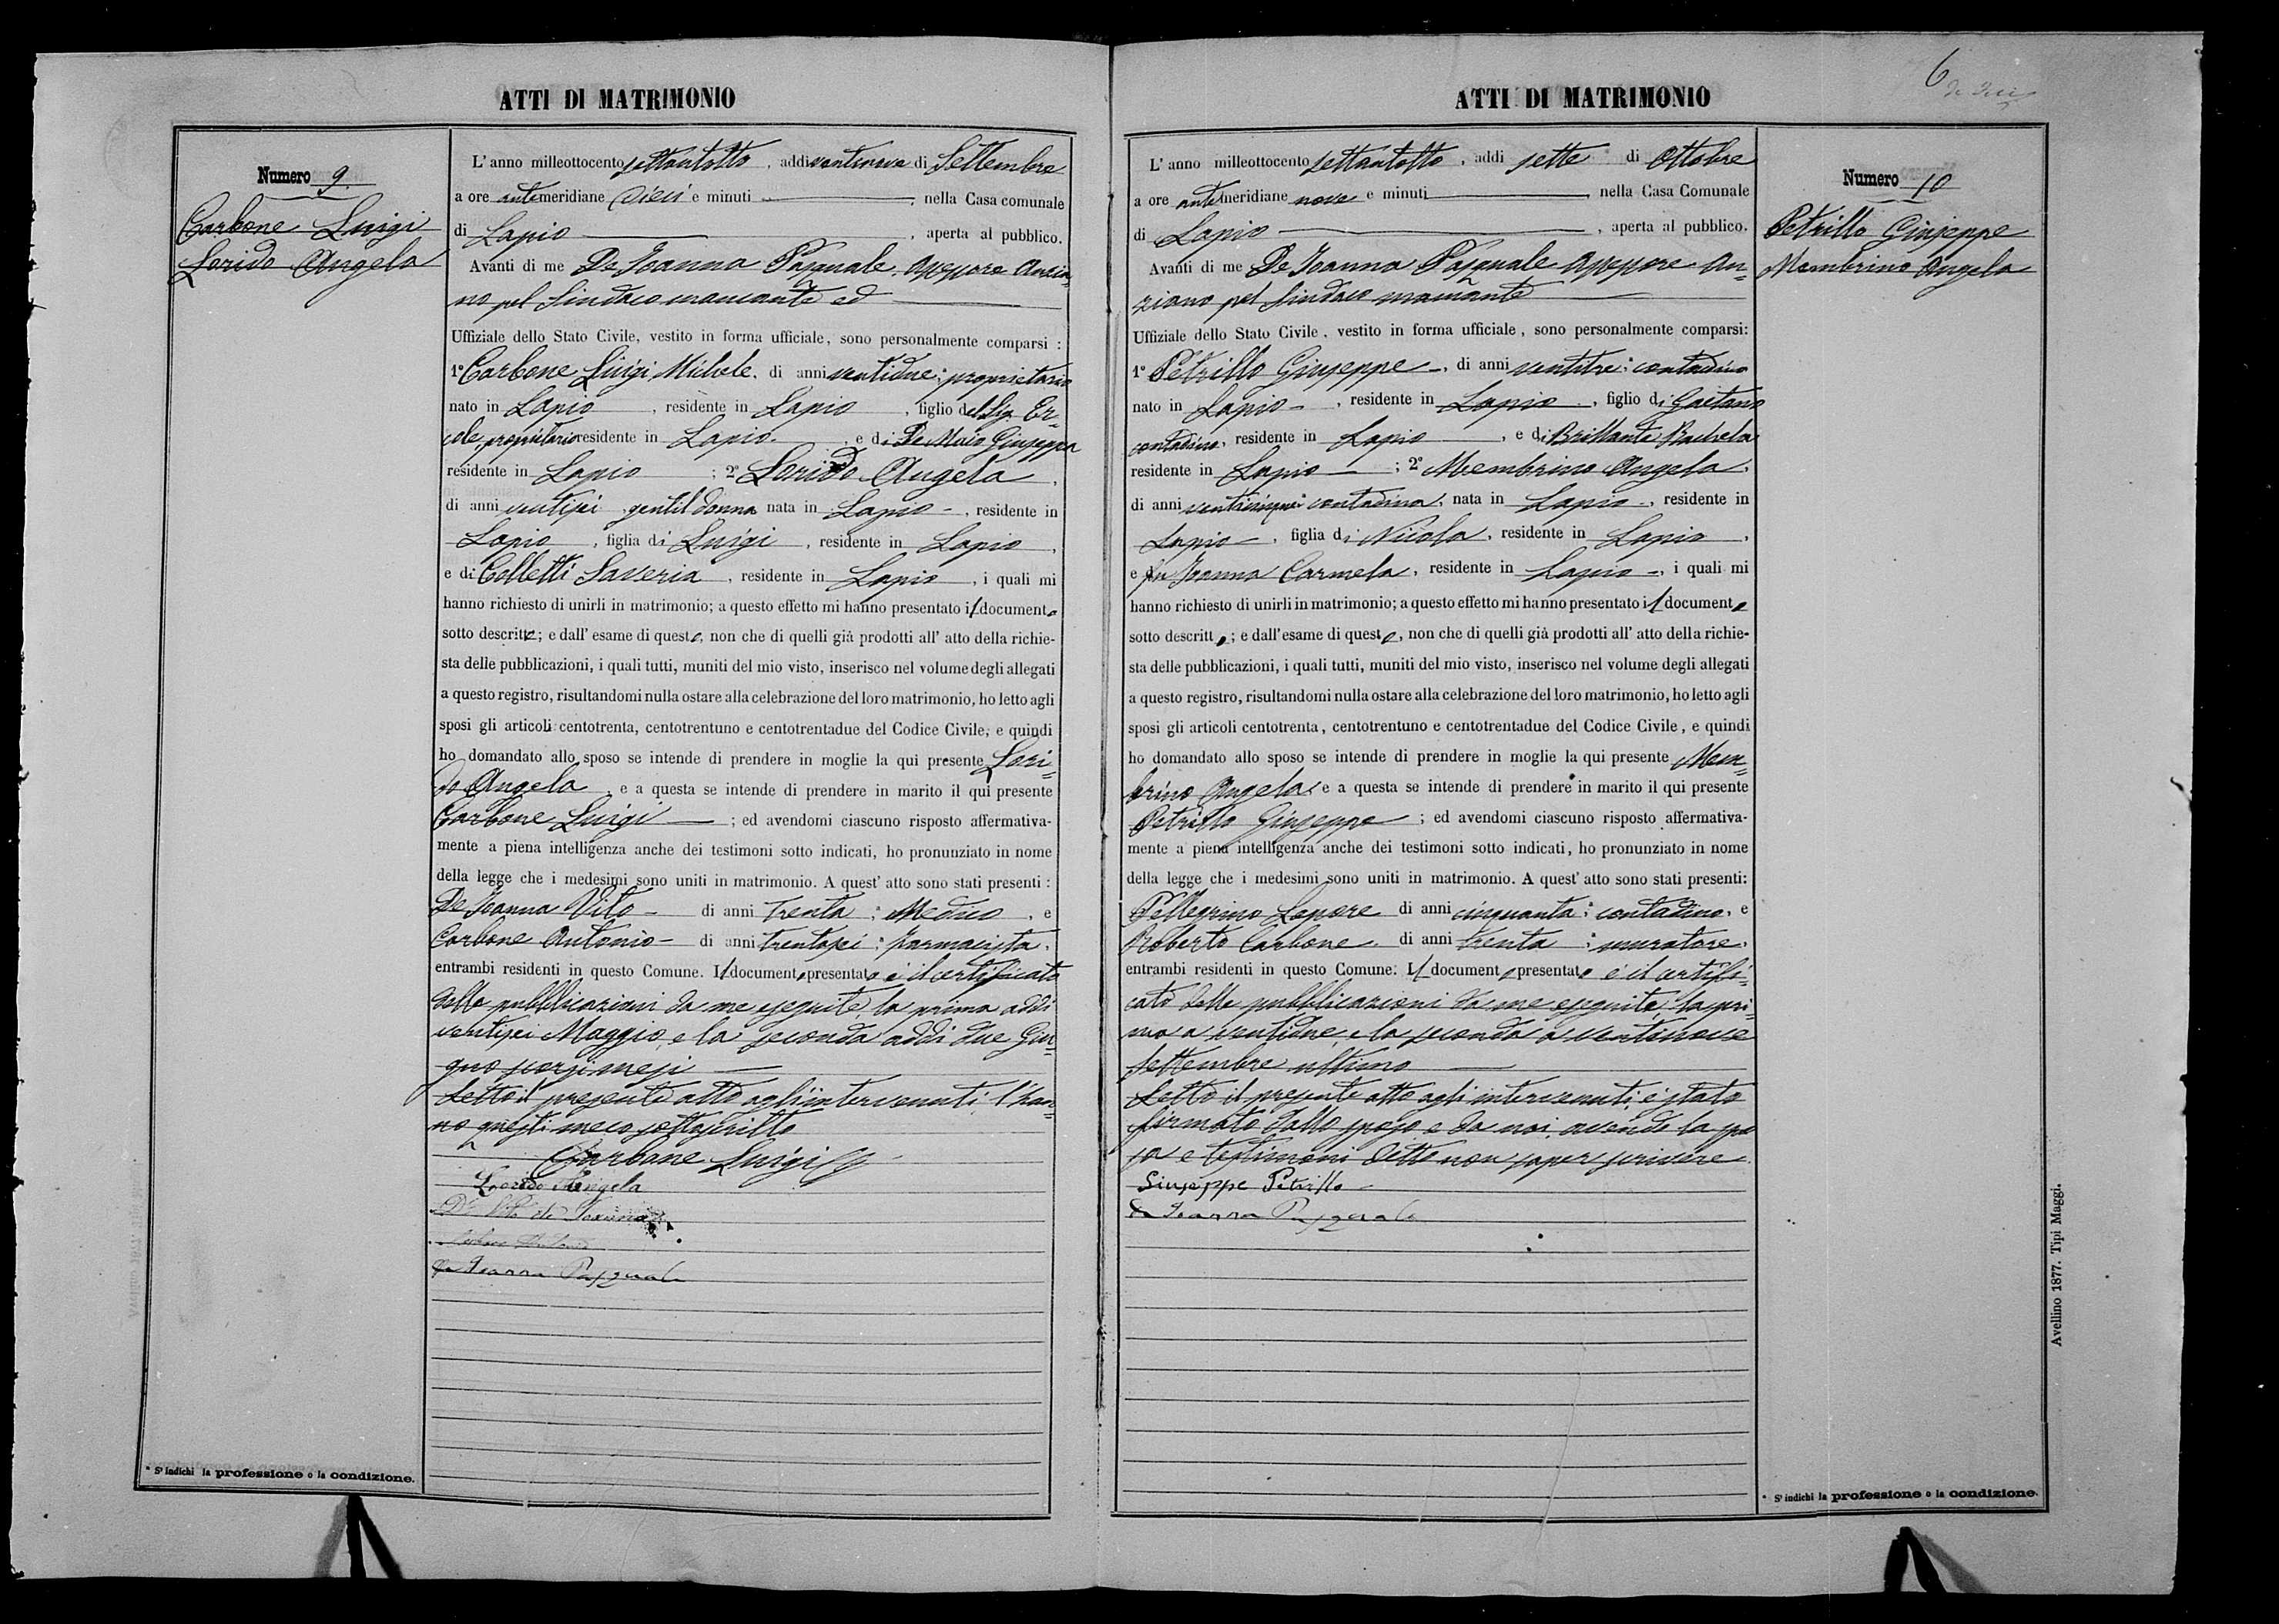 ATTI DI MATRIMONIO
Numero 9.
Carbone Luigi
Lorido Angela
L'anno milleottocento settantotto, addi ventinove di Settembre
a ore antemeridiane dieci e minuti , nella Casa comunale
di Lapio , aperta al pubblico.
Avanti di me De Joanna Pasquale, Assessore Anzia=
no pel Sindaco mancante ed
Uffiziale dello Stato Civile, vestito in forma ufficiale, sono personalmente comparsi :
1º Carbone Luigi Michele, di anni ventidue; proprietario
nato in Lapio , residente in Lapio , figlio del Sig. Er=
cole, proprietario residente in Lapio , e di De Maio Giuseppa
residente in Lapio ; 2º Lorido Angela ,
di anni ventisei gentildonna nata in Lapio , residente in
Lapio , figlia di Luigi , residente in Lapio ,
e di Colletti Saveria , residente in Lapio , i quali mi
hanno richiesto di unirli in matrimonio; a questo effetto mi hanno presentato il documento
sotto descritto; e dall' esame di questo, non che di quelli già prodotti all' atto della richie-
sta delle pubblicazioni, i quali tutti, muniti del mio visto, inserisco nel volume degli allegati
a questo registro, risultandomi nulla ostare alla celebrazione del loro matrimonio, ho letto agli
sposi gli articoli centotrenta, centotrentuno e centotrentadue del Codice Civile, e quindi
ho domandato allo sposo se intende di prendere in moglie la qui presente Lori=
do Angela , e a questa se intende di prendere in marito il qui presente
Carbone Luigi ; ed avendomi ciascuno risposto affermativa-
mente a piena intelligenza anche dei testimoni sotto indicati, ho pronunziato in nome
della legge che i medesimi sono uniti in matrimonio. A quest' atto sono stati presenti :
De Joanna Vito di anni trenta ; Medico , e
Carbone Antonio di anni trentasei ; farmacista ,
entrambi residenti in questo Comune. Il documento presentato è il certificato
delle pubblicazioni da me eseguite, la prima addi
ventisei Maggio, e la seconda addi due Giu=
gno scorsi mesi
Letto il presente atto agli intervenuti, l'han=
no questi meco sottoscritto
Carbone Luigi
Lorido Angela
Dr. Vito de Joanna
Carbone Antonio
de Joanna Pasquale
* S' indichi la professione o la condizione.
ATTI DI MATRIMONIO
6
Numero 10
Petrillo Giuseppe
Membrino Angela
L'anno milleottocento settantotto, addi sette di Ottobre
a ore antemeridiane nove e minuti , nella Casa Comunale
di Lapio , aperta al pubblico.
Avanti di me De Joanna Pasquale Assessore An=
ziano pel Sindaco mancante
Uffiziale dello Stato Civile, vestito in forma ufficiale, sono personalmente comparsi:
1º Petrillo Giuseppe , di anni ventitre; contadino
nato in Lapio , residente in Lapio , figlio di Gaetano
contadino, residente in Lapio , e di Brillante Rachela
residente in Lapio ; 2º Membrino Angela ,
di anni venticinque contadina, nata in Lapio , residente in
Lapio , figlia di Nicola , residente in Lapio ,
e di Joanna Carmela, residente in Lapio , i quali mi
hanno richiesto di unirli in matrimonio; a questo effetto mi hanno presentato il documento
sotto descritto; e dall' esame di questo, non che di quelli già prodotti all' atto della richie-
sta delle pubblicazioni, i quali tutti, muniti del mio visto, inserisco nel volume degli allegati
a questo registro, risultandomi nulla ostare alla celebrazione del loro matrimonio, ho letto agli
sposi gli articoli centotrenta, centotrentuno e centotrentadue del Codice Civile, e quindi
ho domandato allo sposo se intende di prendere in moglie la qui presente Mem=
brino Angela, e a questa se intende di prendere in marito il qui presente
Petrillo Giuseppe ; ed avendomi ciascuno risposto affermativa-
mente a piena intelligenza anche dei testimoni sotto indicati, ho pronunziato in nome
della legge che i medesimi sono uniti in matrimonio. A quest' atto sono stati presenti:
Pellegrino Lepore di anni cinquanta; contadino, e
Roberto Carbone di anni trenta ; muratore,
entrambi residenti in questo Comune. Il documento presentato è il certifi=
cato delle pubblicazioni da me eseguite, la pri=
ma a ventidue, e la seconda a ventinove
Settembre ultimo
Letto il presente atto agli intervenuti, è stato
firmato dallo sposo e da noi, avendo la spo
sa e testimoni detto non saper scrivere
Giuseppe Petrillo
de Joanna Pasquale
* S' indichi la professione o la condizione.
Avellino 1877. Tipi Maggi.